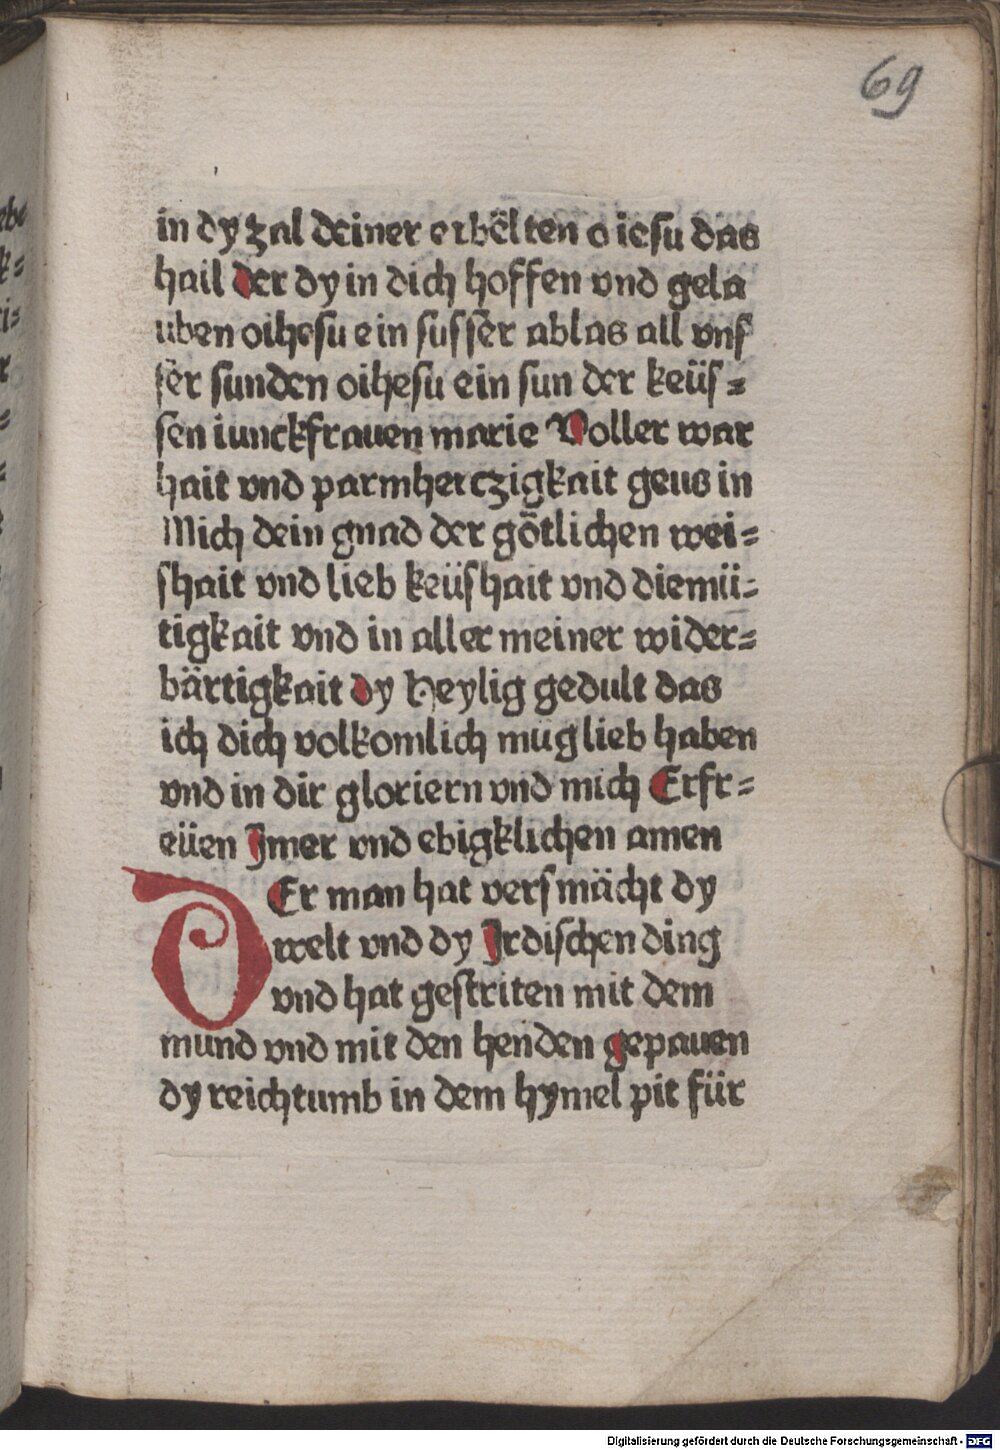 69
in dy zal deiner erbëlten o iesu das
hail der dy in dich hoffen vnd gela
uben oihesu ein susser ablas all vnſ
ser sunden oihesu ein sun der keüſ=
sen iunckfrauen marie Voller war
hait vnd parmherczigkait geus in
Mich dein gnad der götlichen wei=
shait vnd lieb keüſhait vnd diemü=
tigkait vnd in aller meiner wider=
bärtigkait dy Heylig gedult das
ich dich volkomlich mug lieb haben
vnd in dir gloriern vnd mich Erfr=
eüen Jmer vnd ebigklichen amen
DEr man hat verſmächt dy
welt vnd dy Jrdiſchen ding
vnd hat geſtriten mit dem
mund vnd mit den henden gepauen
dy reichtumb in dem hymel pit für
Digitalisierung gefördert durch die Deutsche Forschungsgemeinschaft - DFG